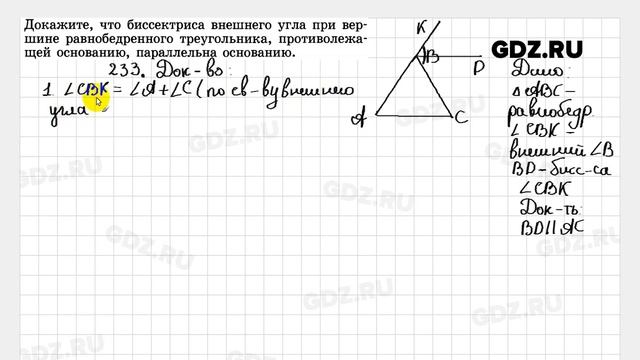 Докажите, что биссектриса внешнего угла при вер-
шине равнобедренного треугольника, противолежа-
щей основанию, параллельна основанию.
233. Док-во:
1. ∠CBK = ∠A + ∠C (по св-ву внешнего
угла
K
B
D
A
C
GDZ.RU
Дано:
△ABC -
равнобедр.
∠CBK -
внешний ∠B
BD - бисс-са
∠CBK
Док-ть:
BD || AC
GDZ.RU
GDZ.RU
GDZ.RU
GDZ.RU
GDZ.RU
GDZ.RU